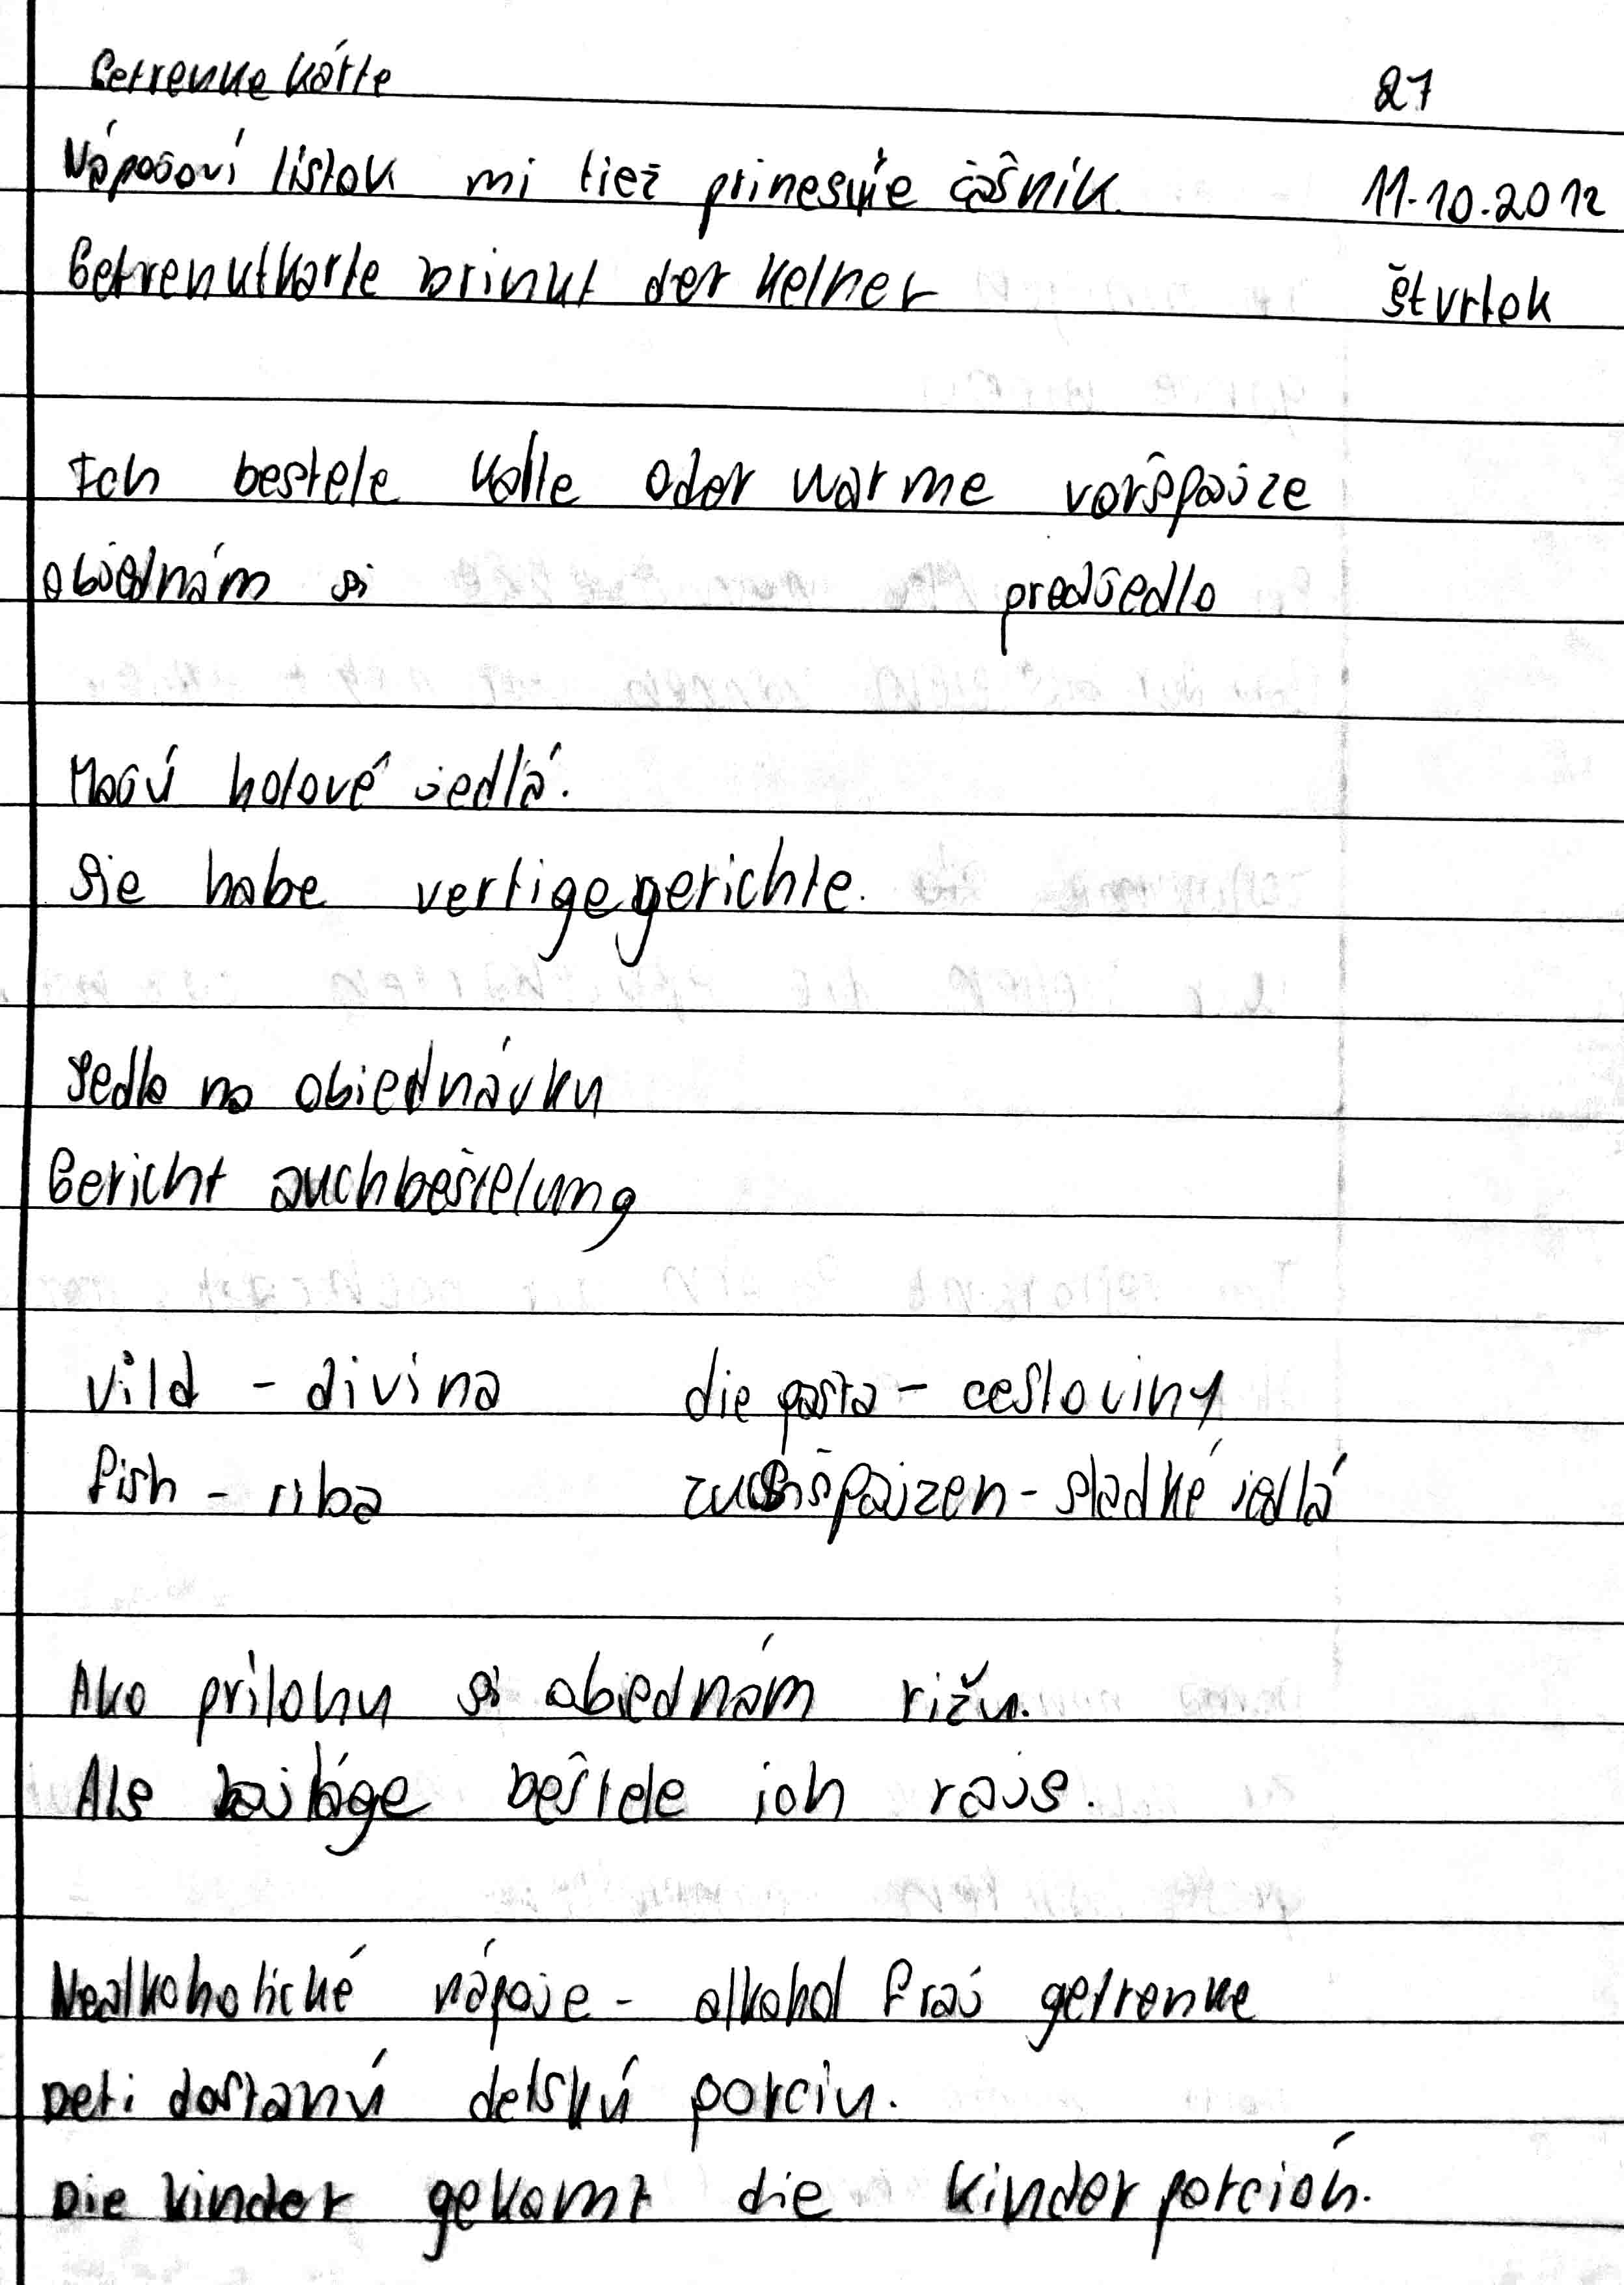 Getrenke kárte
27
Nápojoví lístok mi tiež prinesvie čašník.
11.10.2012
Getrenktkarte brinkt der kelner
štvrtok
Ich bestele kalte oder warme voršpajze
objednám si predjedlo
Majú hotové jedlá.
Sie habe vertigegerichte.
Jedla na objednávku
Gericht auchbeštelung
Vild - divina die pasta - cestoviny
fish - riba špajzen - sladké jedlá
Ako prílohu si objednám rižu.
Als bajláge beštele ich rajs.
Nealkoholické nápoje - alkohol fraj getrenke
Deti dostanú detskú porciu.
Die kinder gekomt die kinder porción.